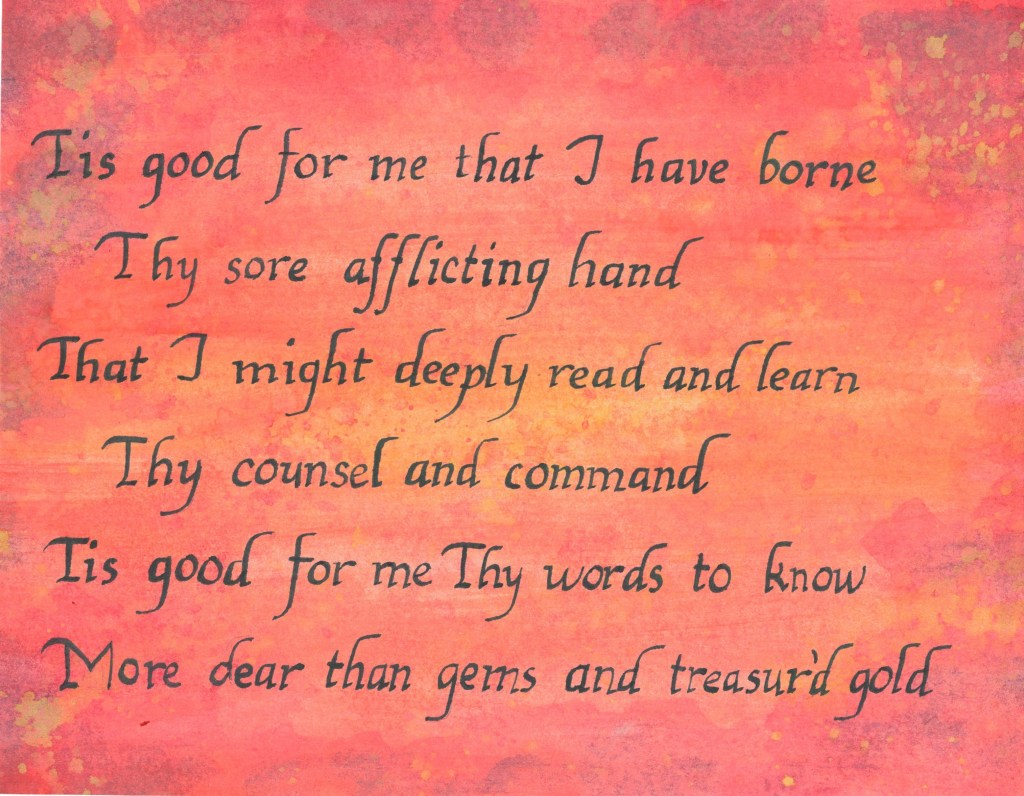 Tis good for me that I have borne
Thy sore afflicting hand
That I might deeply read and learn
Thy counsel and command
Tis good for me Thy words to know
More dear than gems and treasur'd gold